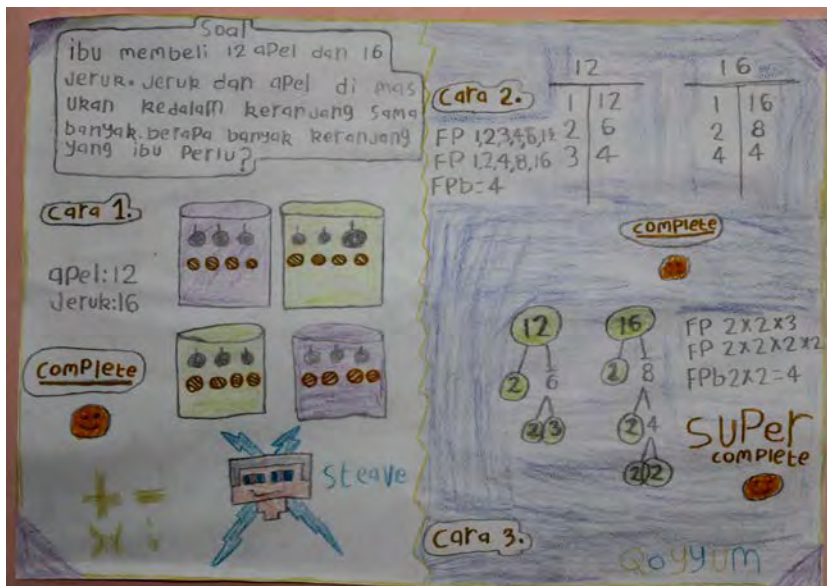 Soal
ibu membeli 12 apel dan 16
Jeruk. Jeruk dan apel di mas
ukan kedalam keranjang sama
banyak. berapa banyak keranjang
yang ibu perlu?
Cara 1.
apel:12
Jeruk:16
Complete
steave
+ =
× ÷
Cara 2.
FP 1,2,3,4,6,12
FP 1,2,4,8,16
FPb=4
12
1 12
2 6
3 4
16
1 16
2 8
4 4
complete
12
2 6
2 3
16
2 8
2 4
2 2
FP 2x2x3
FP 2x2x2x2
FPb 2x2=4
SUPer
complete
Cara 3.
Qoyyum